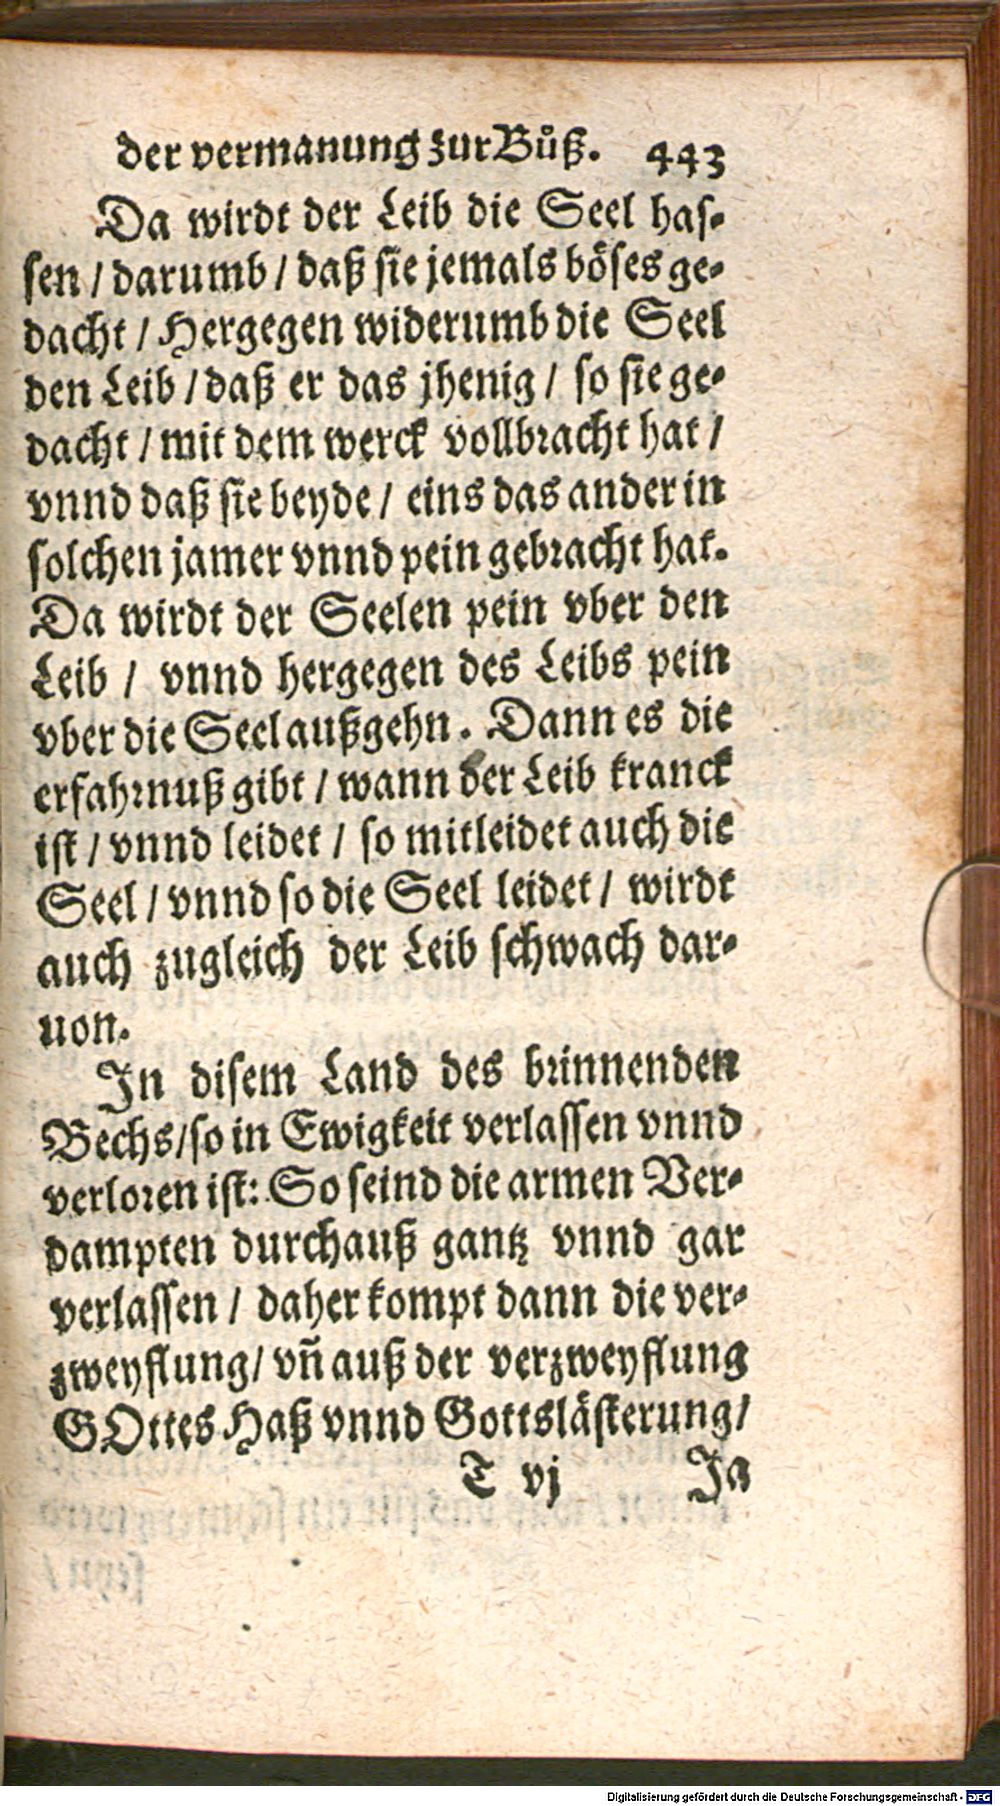 der vermanung zur Bůß. 443
Da wirdt der Leib die Seel has-
sen / darumb / daß sie jemals böses ge-
dacht / Hergegen widerumb die Seel
den Leib / daß er das jhenig / so sie ge-
dacht / mit dem werck vollbracht hat /
vnnd daß sie beyde / eins das ander in
solchen jamer vnnd pein gebracht hat.
Da wirdt der Seelen pein vber den
Leib / vnnd hergegen des Leibs pein
vber die Seel außgehn. Dann es die
erfahrnuß gibt / wann der Leib kranck
ist / vnnd leidet / so mitleidet auch die
Seel / vnnd so die Seel leidet / wirdt
auch zugleich der Leib schwach dar-
uon.
In disem Land des brinnenden
Bechs / so in Ewigkeit verlassen vnnd
verloren ist: So seind die armen Ver-
dampten durchauß gantz vnnd gar
verlassen / daher kompt dann die ver-
zweyflung / vñ auß der verzweyflung
GOttes Haß vnnd Gottslästerung /
T vj Ja
Digitalisierung gefördert durch die Deutsche Forschungsgemeinschaft - DFG